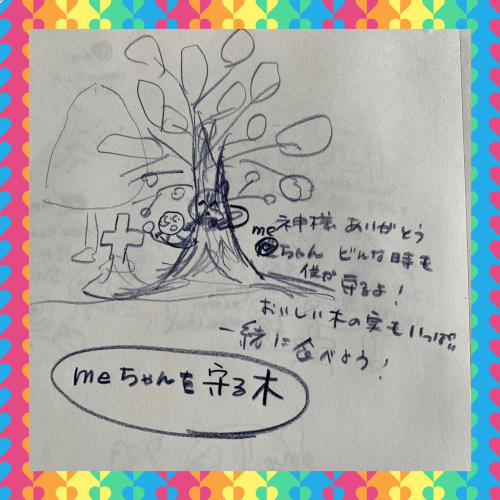 神様 ありがとう
meちゃん どんな時も
が 守るよ!
おいしい木の実もいっぱい
一緒に食べよう!
meちゃんを守る木